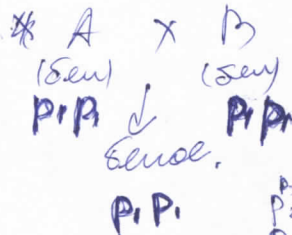 * A x B
(бел) (бел)
P₁P₁ P₁P₁
белое.
P₁ P₁